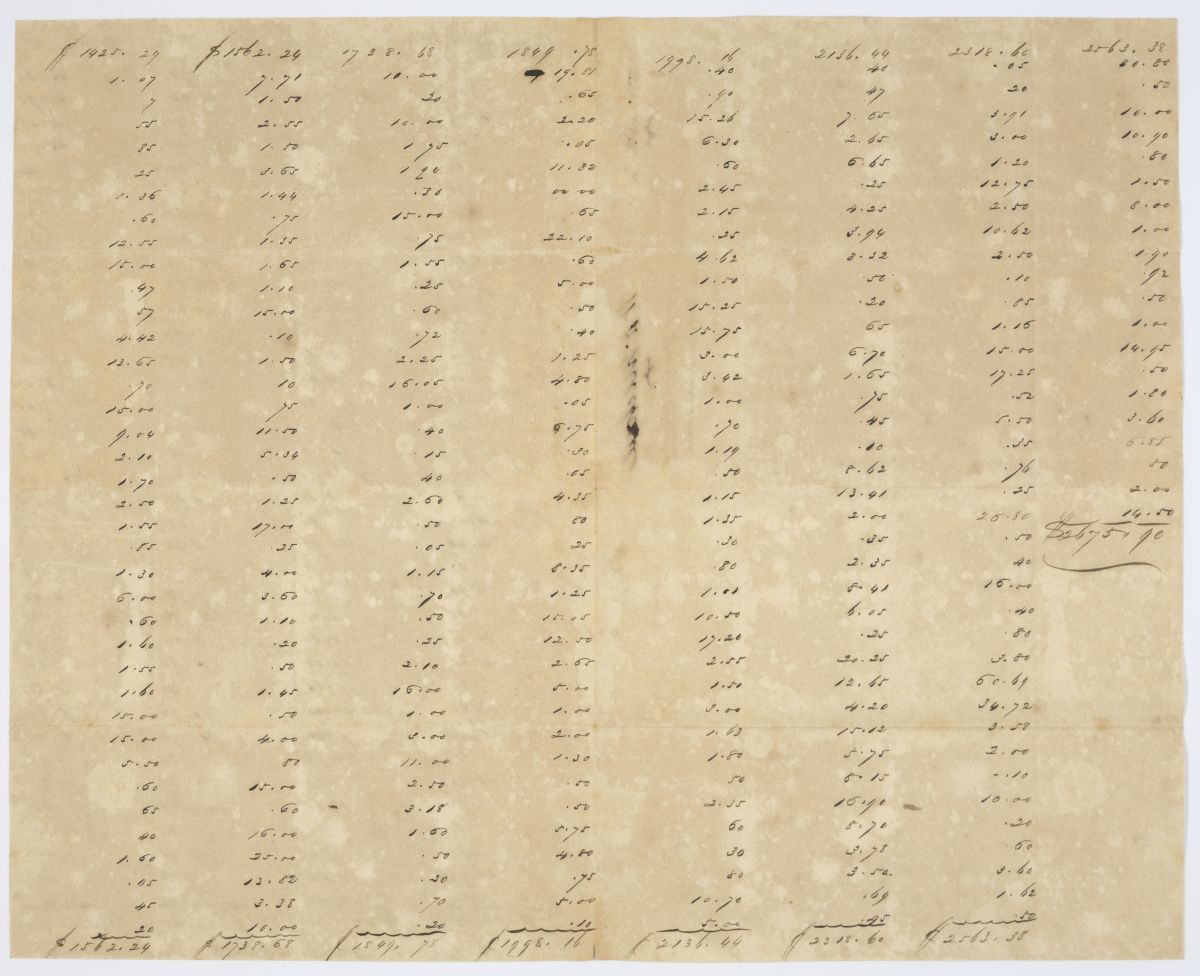 $1425.29
1.07
7
55
85
25
1.36
.60
12.55
15.00
.47
57
4.42
13.65
.70
15.00
9.04
2.10
1.70
2.50
1.55
.85
1.30
6.00
.60
1.60
1.55
1.60
15.00
15.00
5.50
.60
65
40
1.60
.05
45
20
$1562.24
$1562.24
7.71
1.50
2.55
1.50
3.65
1.44
.75
1.35
1.65
1.10
15.00
.10
1.50
10
75
11.50
5.34
.50
1.25
17.00
.25
4.00
3.60
1.10
.20
.50
1.45
.50
4.00
80
15.00
.60
16.00
25.00
13.82
3.38
10.00
$1738.68
1738.68
10.00
20
10.00
1.75
1.90
.30
15.00
.75
1.55
.25
.60
.72
2.25
16.05
1.00
.40
.15
40
2.60
.50
.05
1.15
.70
.50
.25
2.10
16.00
1.00
3.00
11.00
2.50
3.18
1.60
.50
.30
.70
.20
$1849.78
1849.78
19.81
.65
2.20
.05
11.32
00.00
.65
22.10
.60
5.00
.50
.40
1.25
4.80
.05
6.75
.30
.05
4.35
80
25
8.35
1.25
15.05
12.50
2.65
5.00
1.00
2.00
1.30
.50
.50
5.75
4.80
.75
5.00
.10
$1998.16
1998.16
.40
.90
15.26
6.30
.60
2.45
2.15
.25
4.62
1.50
15.25
15.75
3.00
3.42
1.00
.70
1.19
.50
1.15
1.35
.30
.80
1.01
10.50
17.20
2.55
1.50
3.00
1.63
1.80
50
2.35
60
30
80
10.70
5.00
$2136.44
2136.44
40
47
7.65
2.65
6.65
.25
4.25
3.94
3.32
.50
.20
65
6.70
1.65
.75
.45
.10
8.62
13.41
2.00
.35
2.35
8.41
6.05
.25
20.25
12.65
4.20
15.12
5.75
8.15
16.90
8.70
3.78
3.50
.69
.95
$2318.60
2318.60
.05
20
3.91
3.00
1.20
12.75
2.50
10.62
2.50
.10
.85
1.16
15.00
17.25
.52
5.50
.35
.76
.25
26.80
.50
40
16.00
.40
.80
3.80
60.69
34.72
3.58
2.00
.10
10.00
.20
.60
3.60
1.62
.50
$2563.38
2563.38
30.80
.50
10.00
10.90
.80
1.50
8.00
1.00
1.90
.92
.50
1.00
14.95
.50
1.80
3.60
6.85
50
2.00
14.50
$2675.90